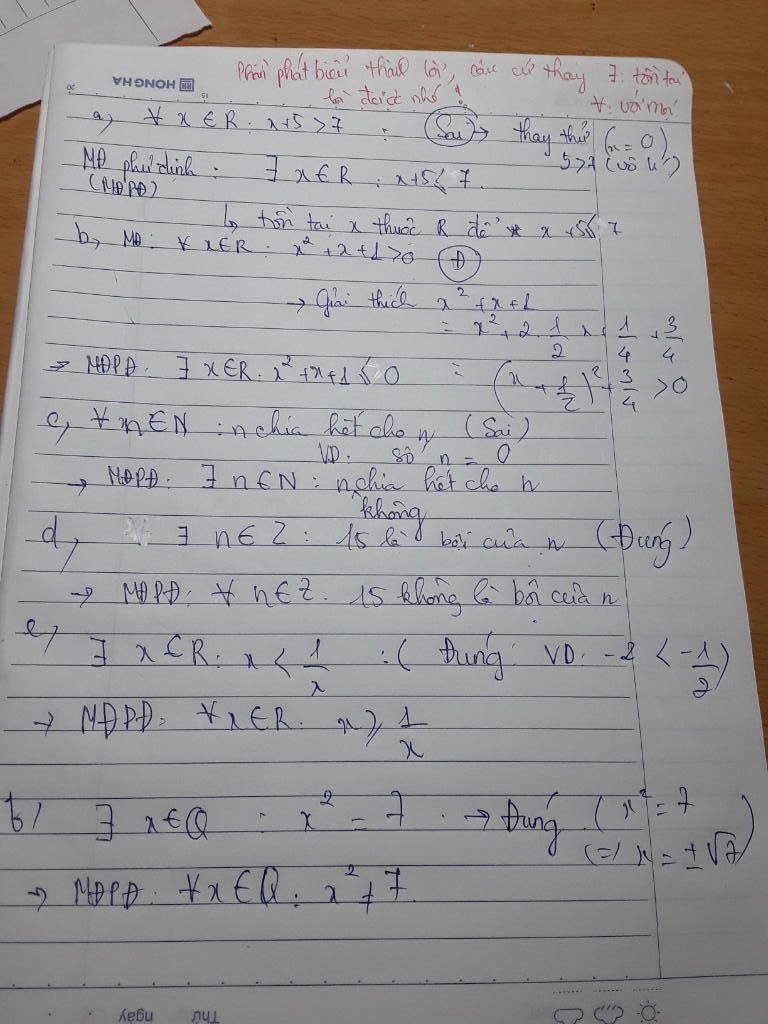 HONG HA
15
20
Phần phát biểu thành lời, các cứ thay ∃: tồn tại
là được nhé! ∀: với mọi
a, ∀ x ∈ R: x+5 > 7 : Sai → thay thử (x = 0)
5>7 (vô lí)
MĐ phủ định: ∃ x ∈ R : x+5 ≤ 7.
(MĐPĐ)
↳ tồn tại x thuộc R để x + 5 ≤ 7
b, MĐ: ∀ x ∈ R: x² + x + 1 > 0 Đ
→ Giải thích x² + x + 1
= x² + 2. 1/2 x + 1/4 + 3/4
→ MĐPĐ: ∃ x ∈ R: x² + x + 1 ≤ 0 = (x + 1/2)² + 3/4 > 0
c, ∀ n ∈ N : n chia hết cho n (Sai)
VD: số n = 0
→ MĐPĐ: ∃ n ∈ N : n không chia hết cho n
d, ∃ n ∈ Z : 15 là bội của n (Đúng)
→ MĐPĐ: ∀ n ∈ Z: 15 không là bôi của n
e, ∃ x ∈ R: x < 1/x : (Đúng: VD: -2 < -1/2)
→ MĐPĐ: ∀ x ∈ R: x ≥ 1/x
b/ ∃ x ∈ Q : x² = 7 . → Đúng. (x² = 7
(=) x = ±√7)
→ MĐPĐ: ∀ x ∈ Q: x² ≠ 7.
Thứ ngày